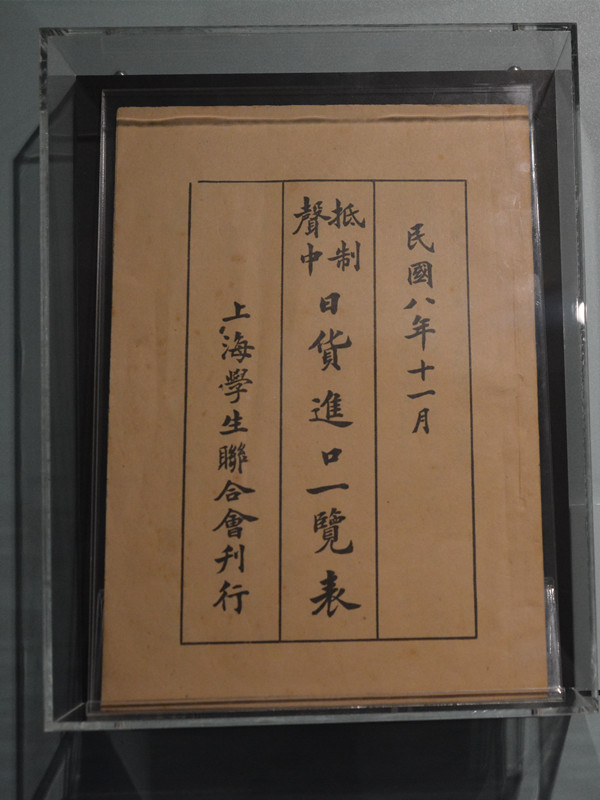 民國八年十一月
抵制聲中日貨進口一覽表
上海學生聯合會刊行